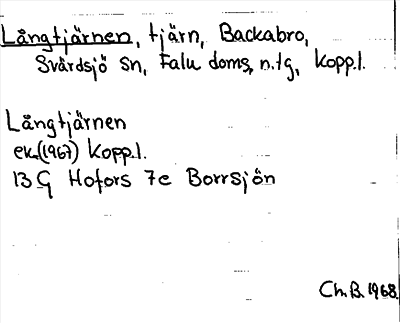 Långtjärnen, tjärn, Backabro,
Svärdsjö sn, Falu doms, n.tg, Kopp.l.
Långtjärnen
ek.(1967) Kopp.l.
13 G Hofors 7e Borrsjön
Ch.B. 1968.